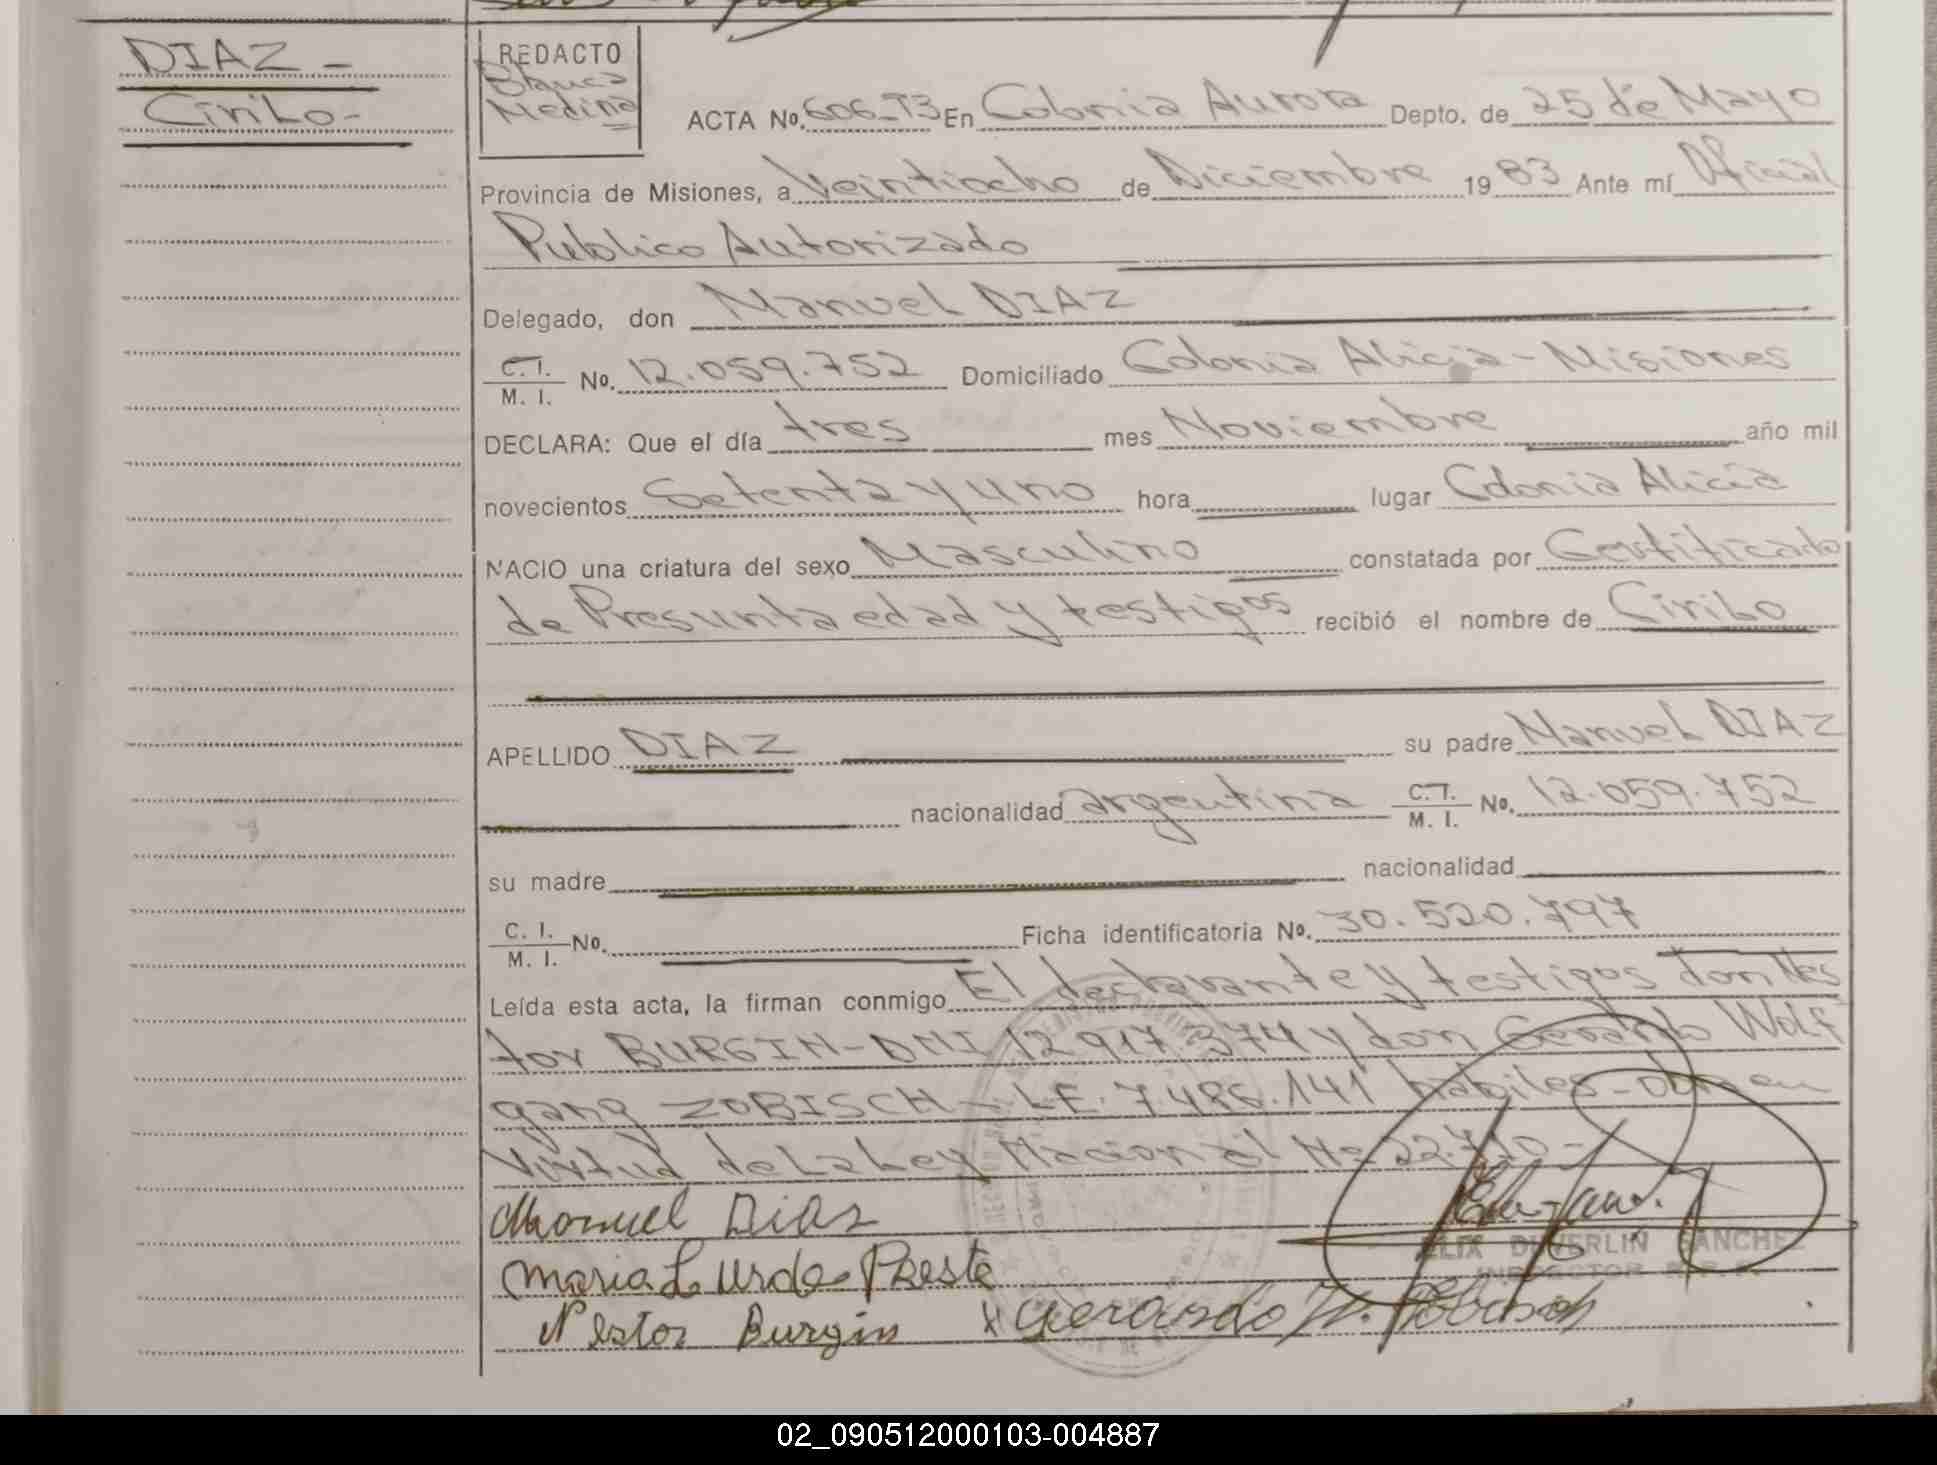 DIAZ -
Cirilo -
REDACTO
Blanca
Medina
ACTA No. 606-T3 En Colonia Aurora Depto. de 25 de Mayo
Provincia de Misiones, a Veintiocho de Diciembre 19 83 Ante mí Oficial
Publico Autorizado
Delegado, don Manuel DIAZ
C. I. M. I. No. 12.059.752 Domiciliado Colonia Alicia - Misiones
DECLARA: Que el día tres mes Noviembre año mil
novecientos Setenta y uno hora lugar Colonia Alicia
NACIO una criatura del sexo Masculino constatada por Certificado
de Presunta edad y testigos recibió el nombre de Cirilo
APELLIDO DIAZ su padre Manuel DIAZ
nacionalidad argentina C. I. M. I. No. 12.059.752
su madre nacionalidad
C. I. M. I. No. Ficha identificatoria No. 30.520.797
Leída esta acta, la firman conmigo El declarante y testigos don Nes
tor BURGIN - DNI 12.917.374 y don Gerardo Wolf
gang ZOBISCH - LE. 7.486.141 habiles - obra en
Virtud de La Ley Nacional No 22.710 -
Manuel Dias
Maria Lurde Preste
FELIX DUVERLIN SANCHEZ
INSPECTOR R. P.
Nestor Burgin x Gerardo W. Zobisch
02_090512000103-004887